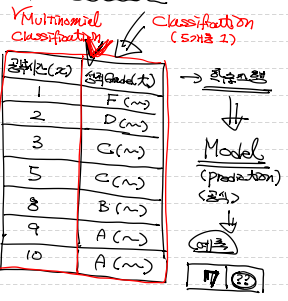 √Multinomial Classification
Classification
(5개중 1)
공부시간(x) 성적Grade(t)
1 F(~)
2 D(~)
3 C(~)
5 C(~)
8 B(~)
9 A(~)
10 A(~)
→ 학습진행
Model
(prediction)
(공식)
예측
7 ??